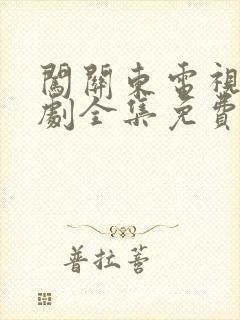 闖關東電視
劇全集免費
普拉蒼